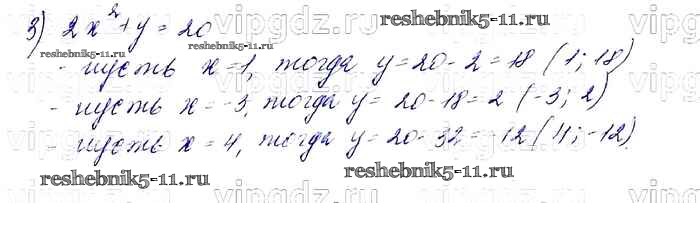 3) 2x² + y = 20
reshebnik5-11.ru
reshebnik5-11.ru
- пусть x = 1, тогда y = 20 - 2 = 18 (1; 18)
- пусть x = -3, тогда y = 20 - 18 = 2 (-3; 2)
- пусть x = 4, тогда y = 20 - 32 = -12 (4; -12).
reshebnik5-11.ru
reshebnik5-11.ru
vipgdz.ru